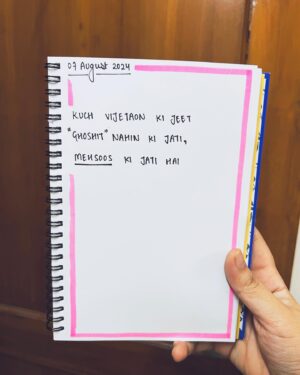 07 August 2024
KUCH VIJETAON KI JEET
"GHOSHIT" NAHIN KI JATI,
MEHSOOS KI JATI HAI